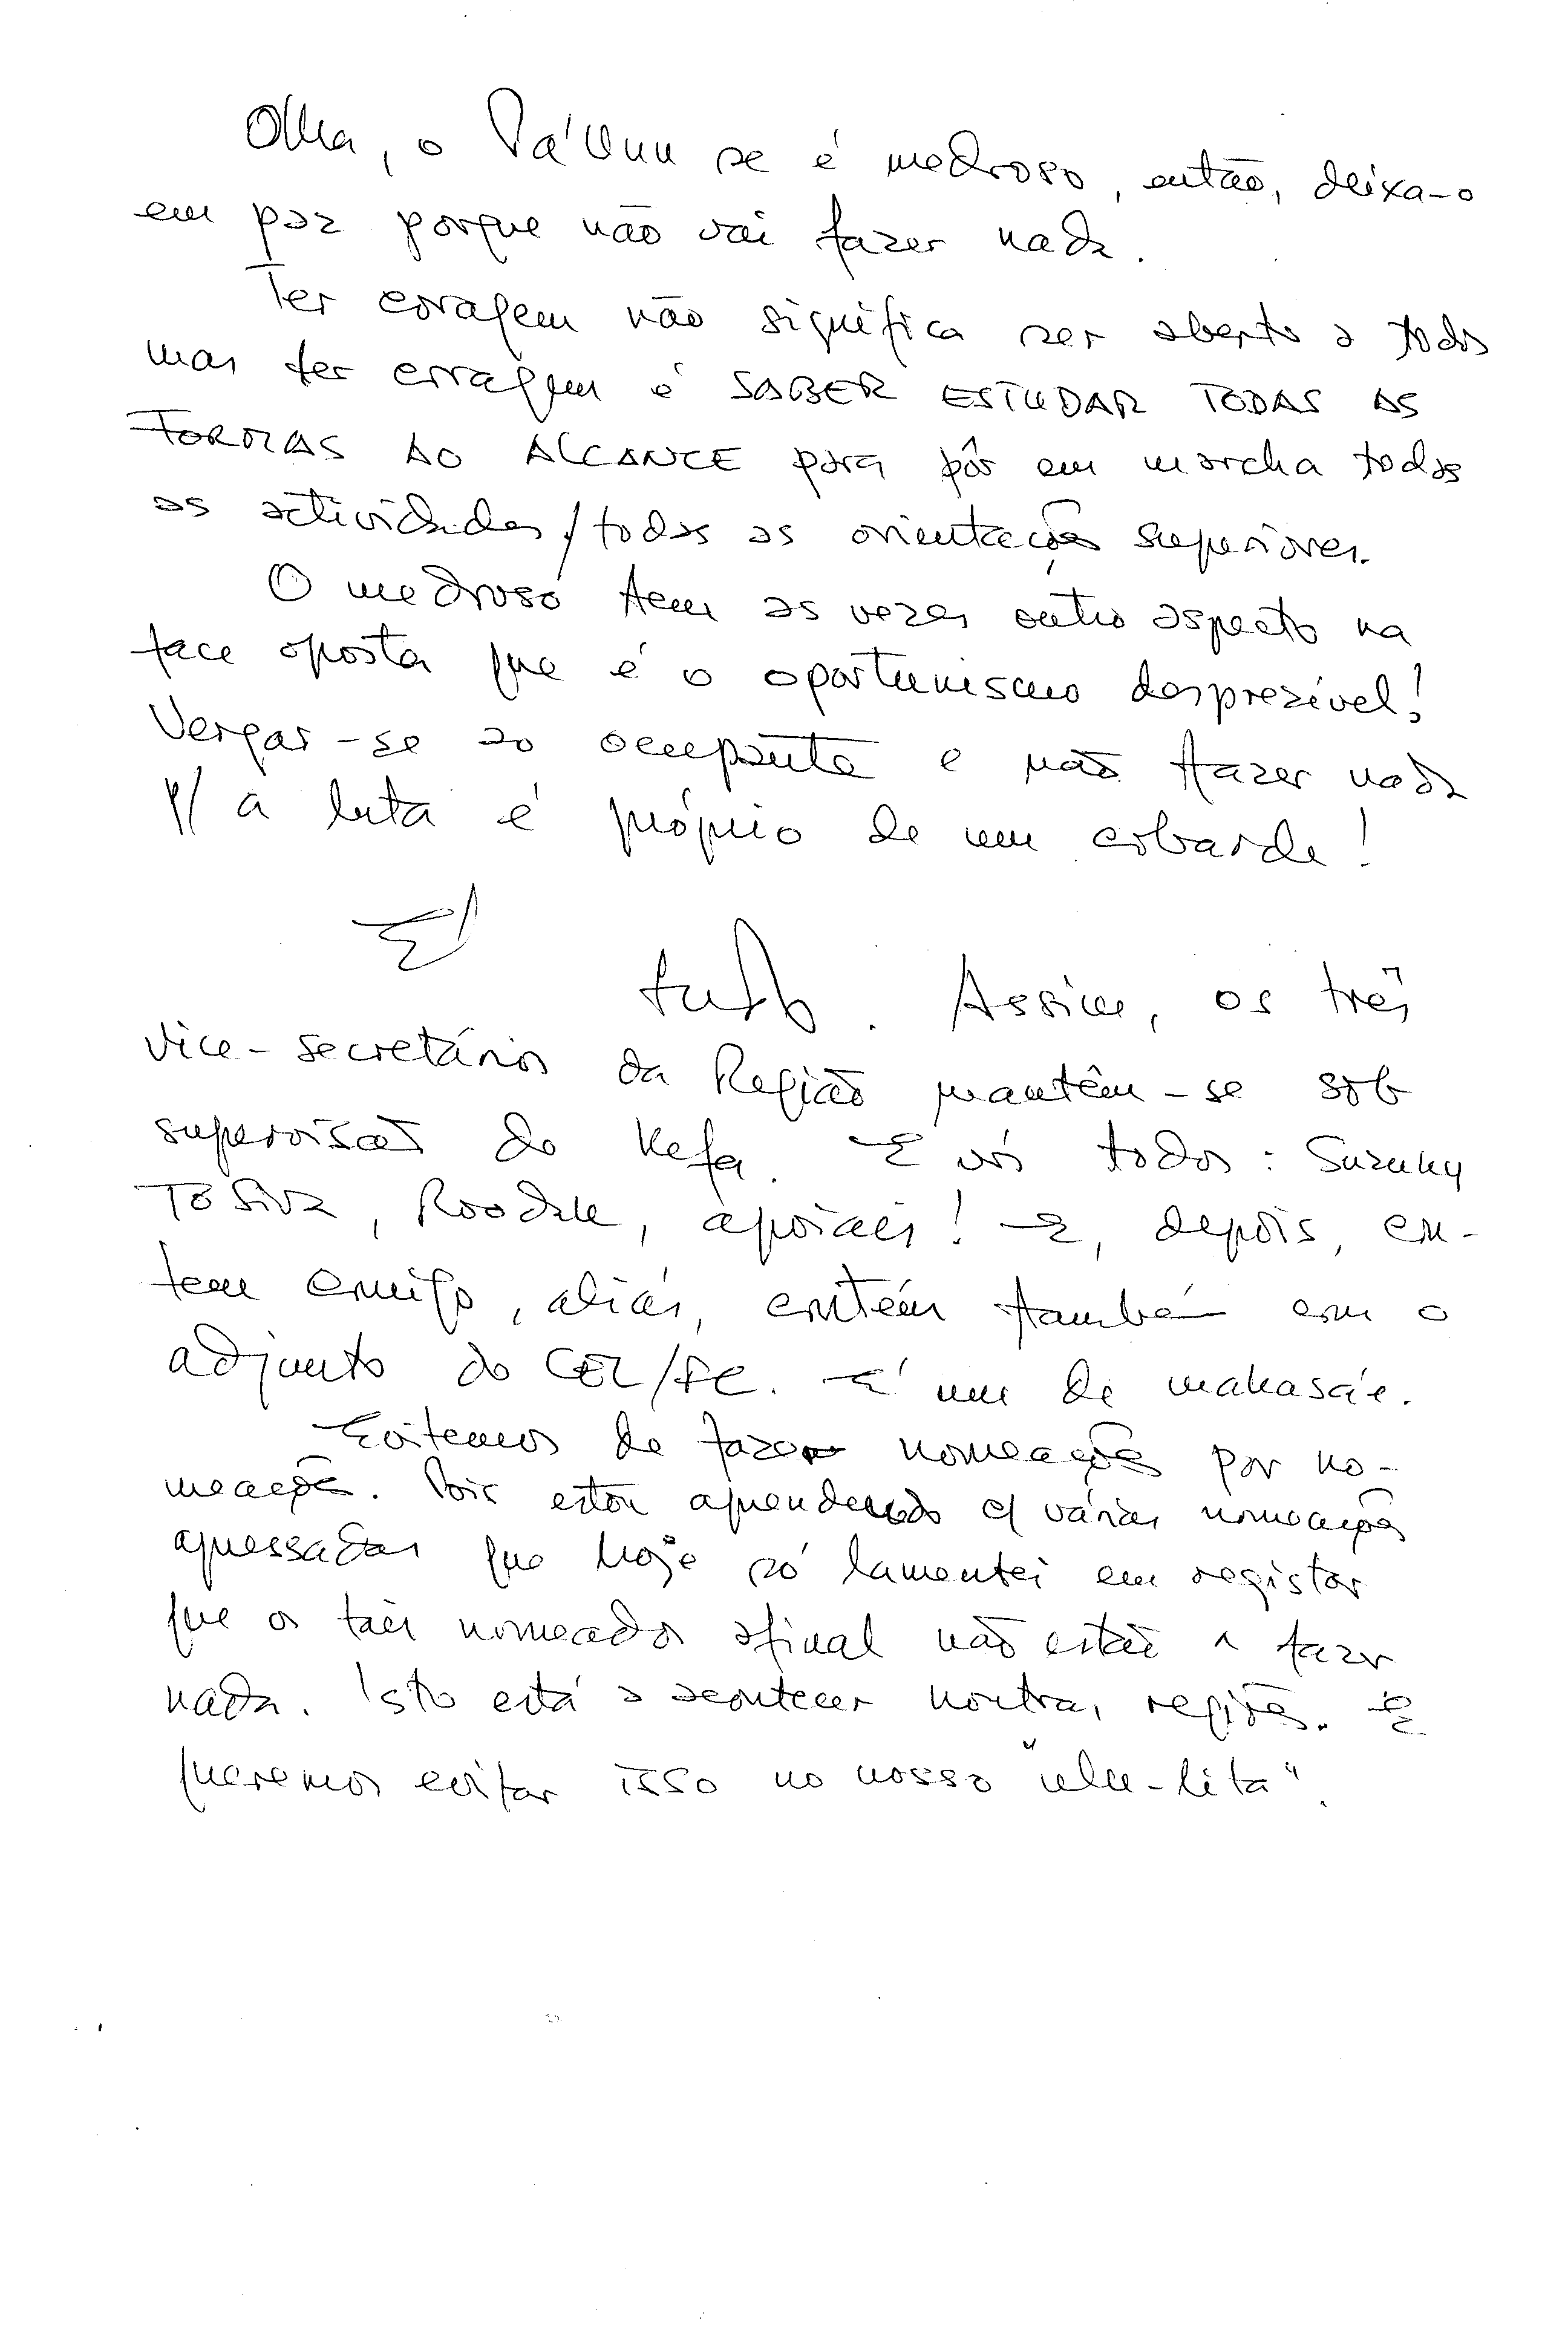 Olha, o Pá'Unu se é medroso, então, deixa-o
em paz porque não vai fazer nada.
Ter coragem não significa ser aberto a todos
mas ter coragem é SABER ESTUDAR TODAS AS
FORMAS AO ALCANCE para pôr em marcha todas
as actividades/todas as orientações superiores.
O medroso tem as vezes outro aspecto na
face oposta que é o oportunismo desprezível!
Vergar-se ao ocupante e não fazer nada
p/ a luta é próprio de um cobarde!
É
tudo. Assim, os três
vice-secretários da Região mantêm-se sob
supervisão do Kefa. E vós todos: Suzuky
Tosiva, Roodale, apoiais! E, depois, con-
tem comigo, aliás, contém também com o
adjunto do CEL/FC. É um de makasá'e.
Evitemos de fazer nomeações por no-
meações. Pois estou aprendendo c/ várias nomeações
apressadas que hoje só lamentei em registar
que os tais nomeados afinal não estão a fazer
nada. Isto está a acontecer noutras regiões. E
queremos evitar isso no nosso "ulu-lita".